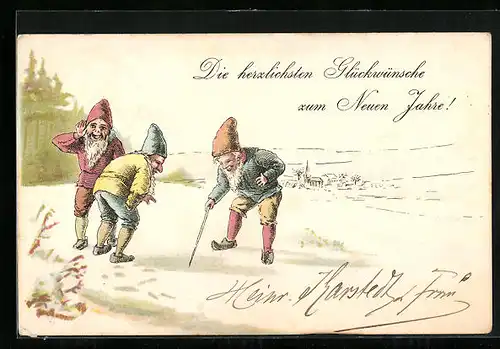 Die herzlichsten Glückwünsche
zum Neuen Jahre!
Heinr. Karstedt & Frau